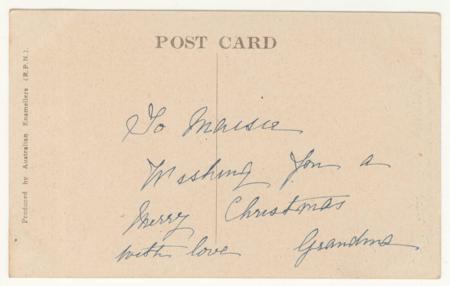 POST CARD
Produced by Australian Enamellers (R.P.N.).
To Maisie
Wishing You a
Merry Christmas
with love Grandma